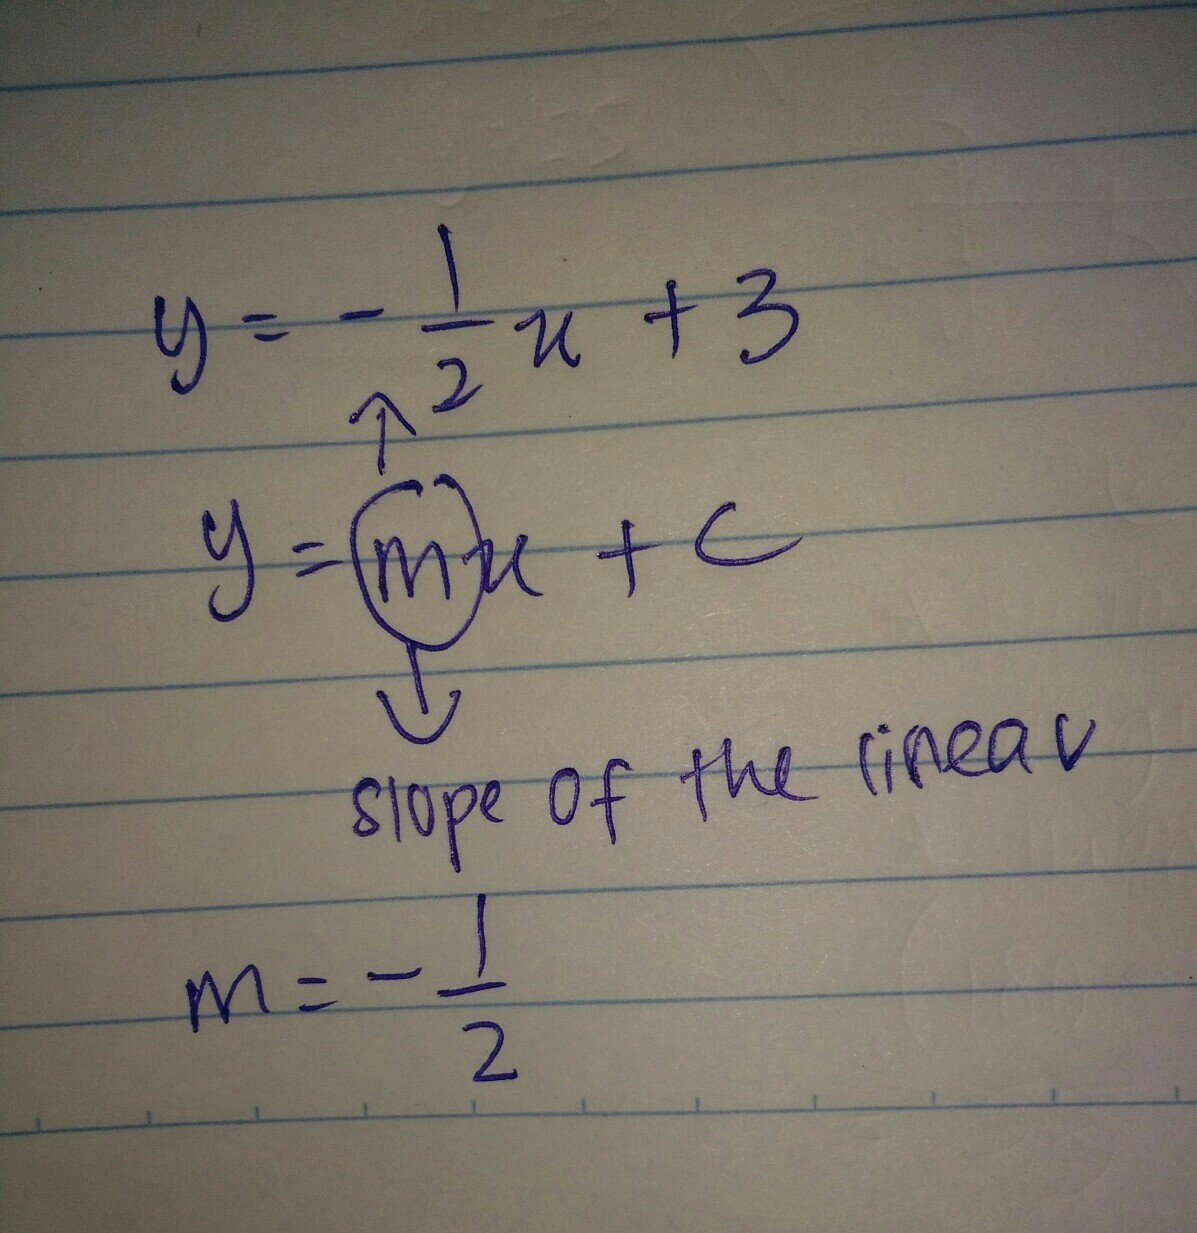 y = - 1/2 x + 3
↑
y = mx + c
↓
slope of the linear
m = - 1/2